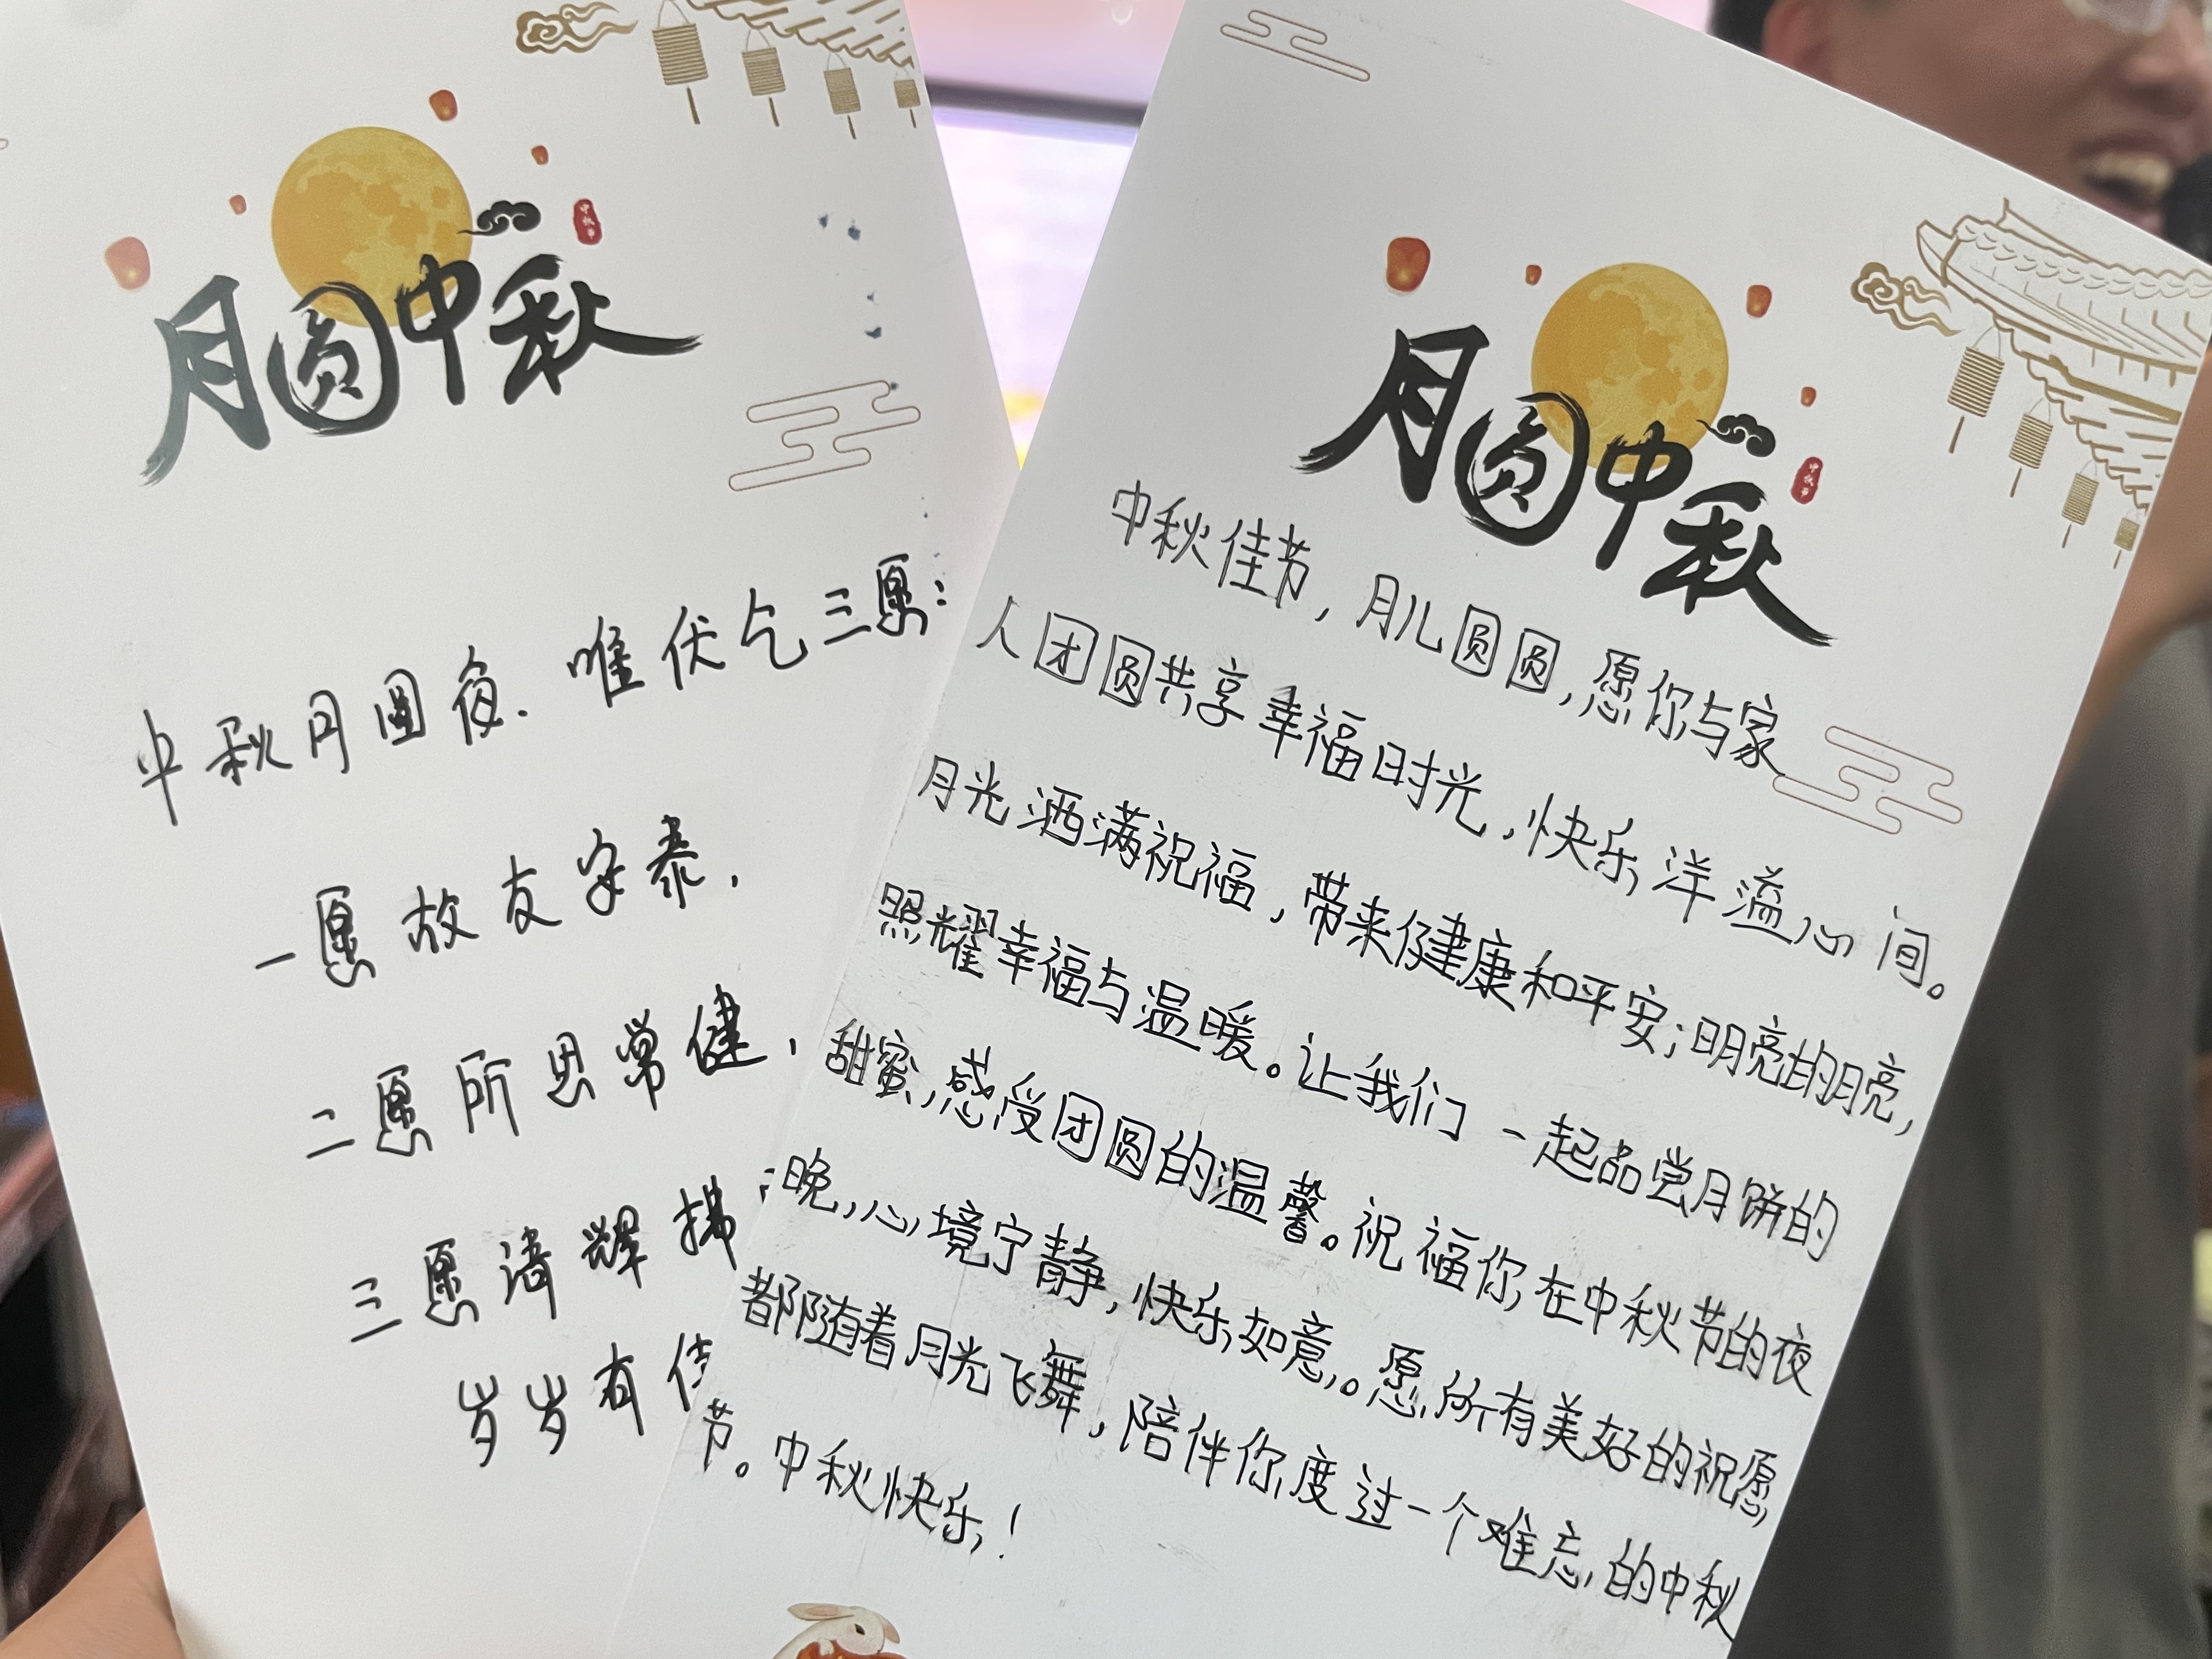 月圆中秋
中秋节
中秋月圆夜.唯伏乞三愿:
一愿故友安泰,
二愿所思常健,
三愿清辉拂
岁岁有佳
月圆中秋
中秋节
中秋佳节,月儿圆圆,愿你与家
人团圆共享幸福时光,快乐洋溢心间。
月光洒满祝福,带来健康和平安;明亮的月亮,
照耀幸福与温暖。让我们一起品尝月饼的
甜蜜,感受团圆的温馨。祝福你在中秋节的夜
晚,心境宁静,快乐如意。愿所有美好的祝愿
都随着月光飞舞,陪伴你度过一个难忘的中秋
节。中秋快乐!